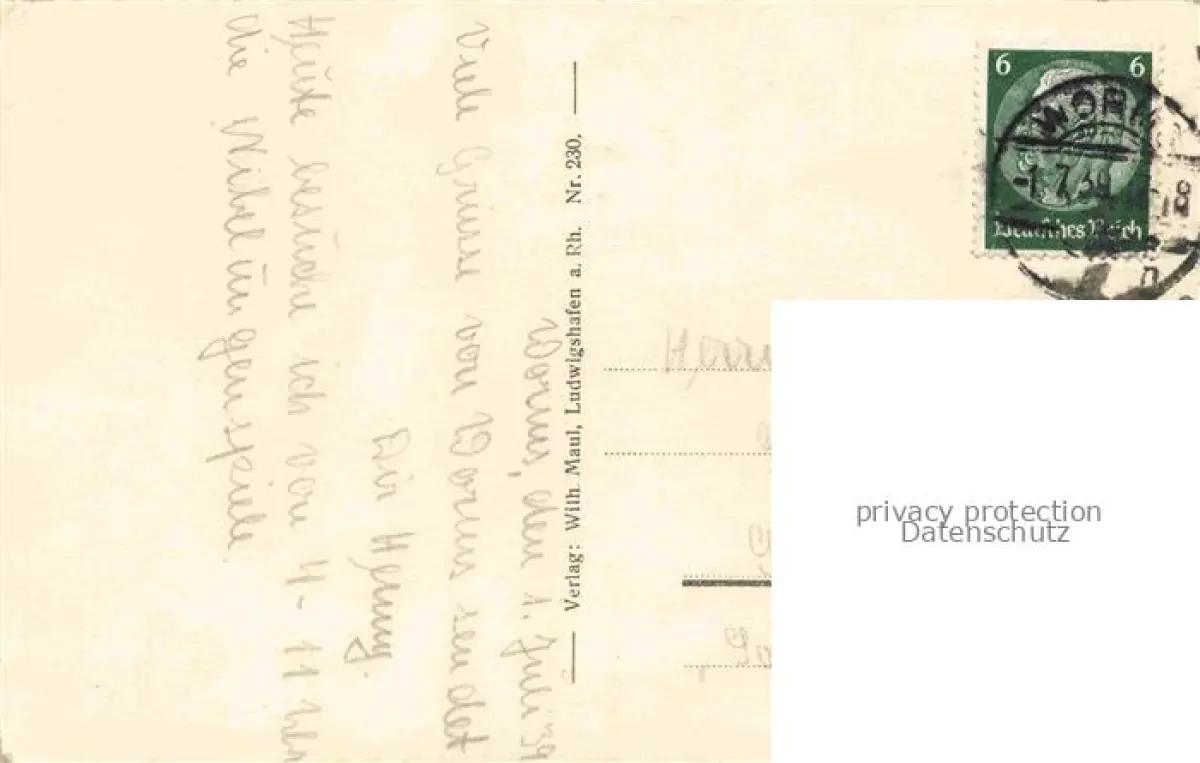 Worms, den 1. Juli 39
Viele Grüsse von Worms sendet
Dir Henny
Heute besuche ich von 4 - 11 Uhr
die Nibelungenspiele
Verlag: Wilh. Maul, Ludwigshafen a. Rh. Nr. 230.
6 6
Deutsches Reich
WORMS
-1.7.39
18
n
Herrn
privacy protection
Datenschutz